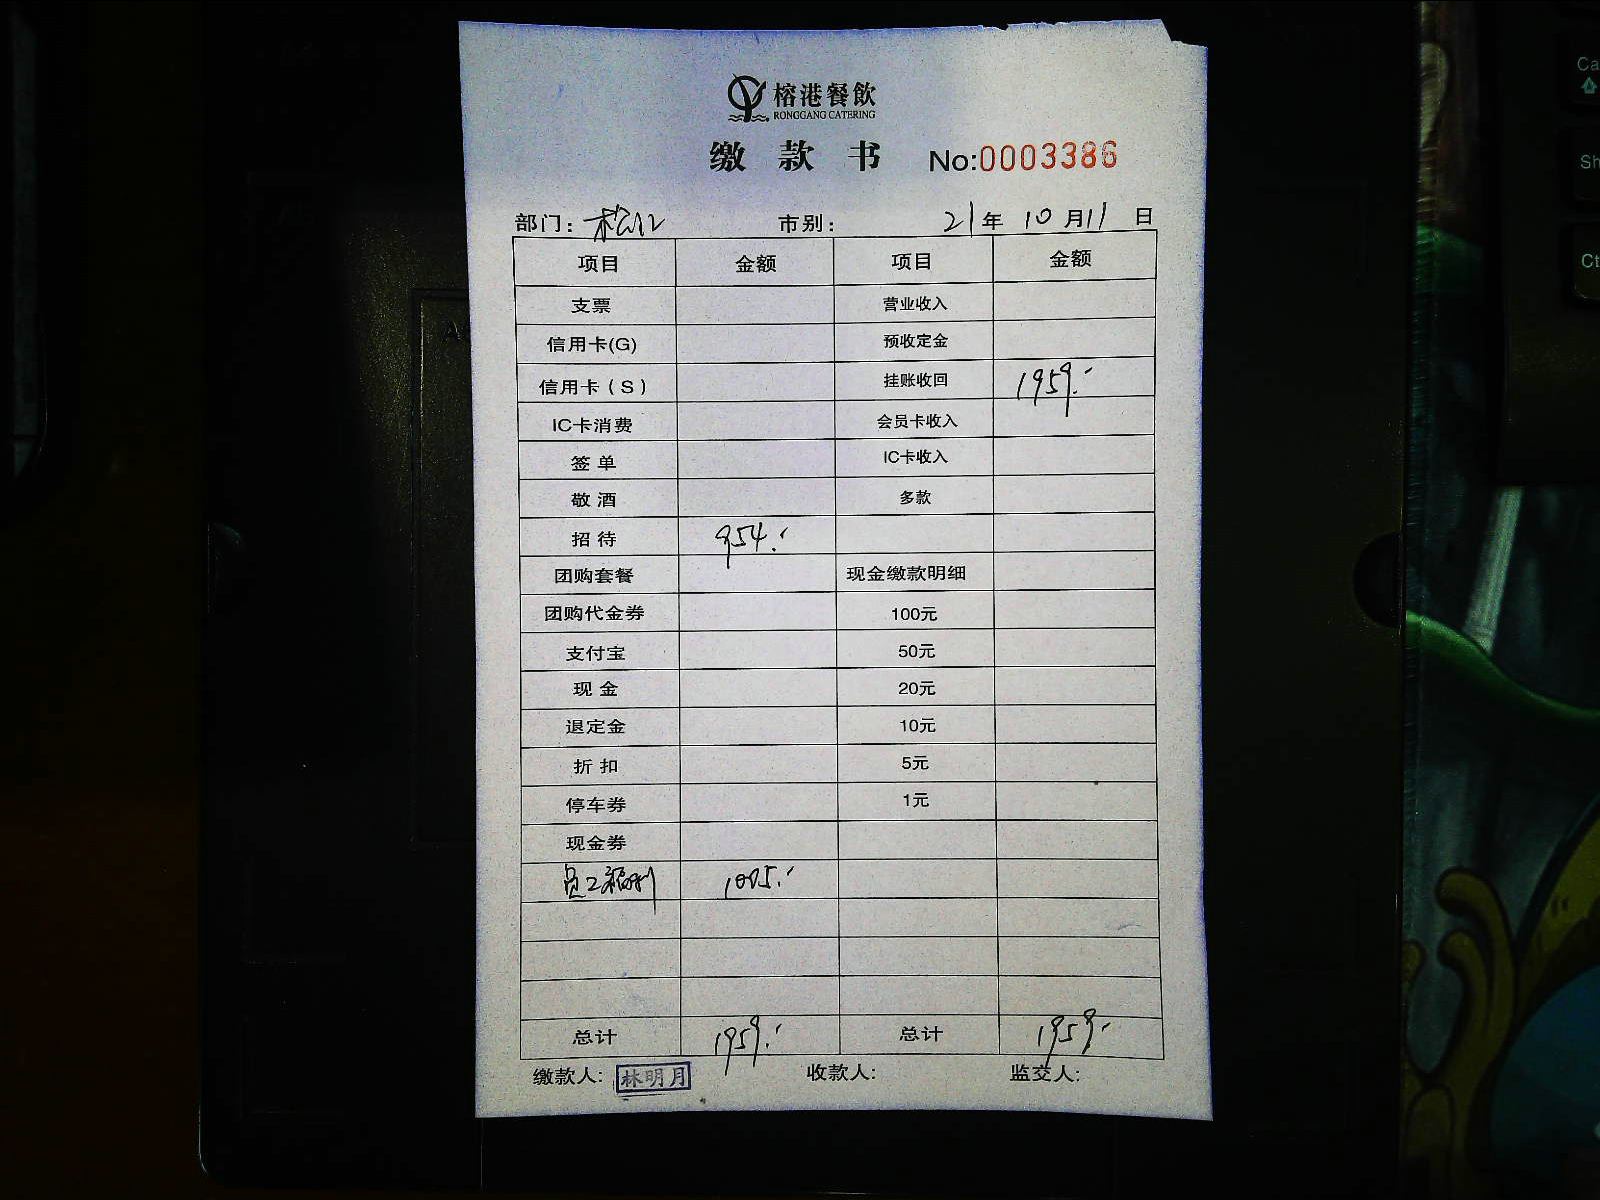 榕港餐飲
RONGGANG CATERING
缴款书 No:0003386
部门: 松江 市别: 21年 10月11日
项目 金额 项目 金额
支票 营业收入
信用卡(G) 预收定金
信用卡(S) 挂账收回 1959.-
IC卡消费 会员卡收入
签单 IC卡收入
敬酒 多款
招待 954.-
团购套餐 现金缴款明细
团购代金券 100元
支付宝 50元
现金 20元
退定金 10元
折扣 5元
停车券 1元
现金券
员工福利 1005.-
总计 1959.- 总计 1959.-
缴款人: 林明月 收款人: 监交人:
Ca
Sh
Ct